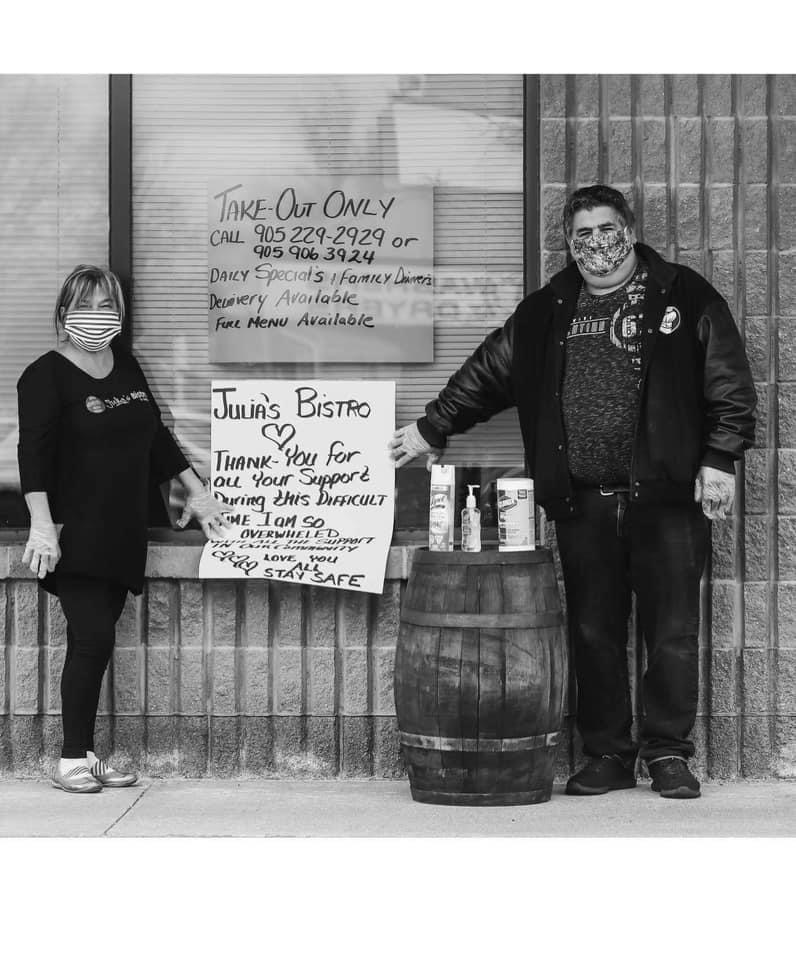 TAKE-OUT ONLY
CALL 905 229-2929 or
905 906 3924
DAILY Special's / FAMILY Dinners
Delivery Available
Full Menu Available
JULIA'S BISTRO
THANK-YOU for
all Your Support
During this DIFFICULT
TIME I am so
OVERWHELED
WITH ALL THE SUPPORT
IN OUR COMMUNITY
LOVE YOU
ALL
STAY SAFE
Julia's
Lysol